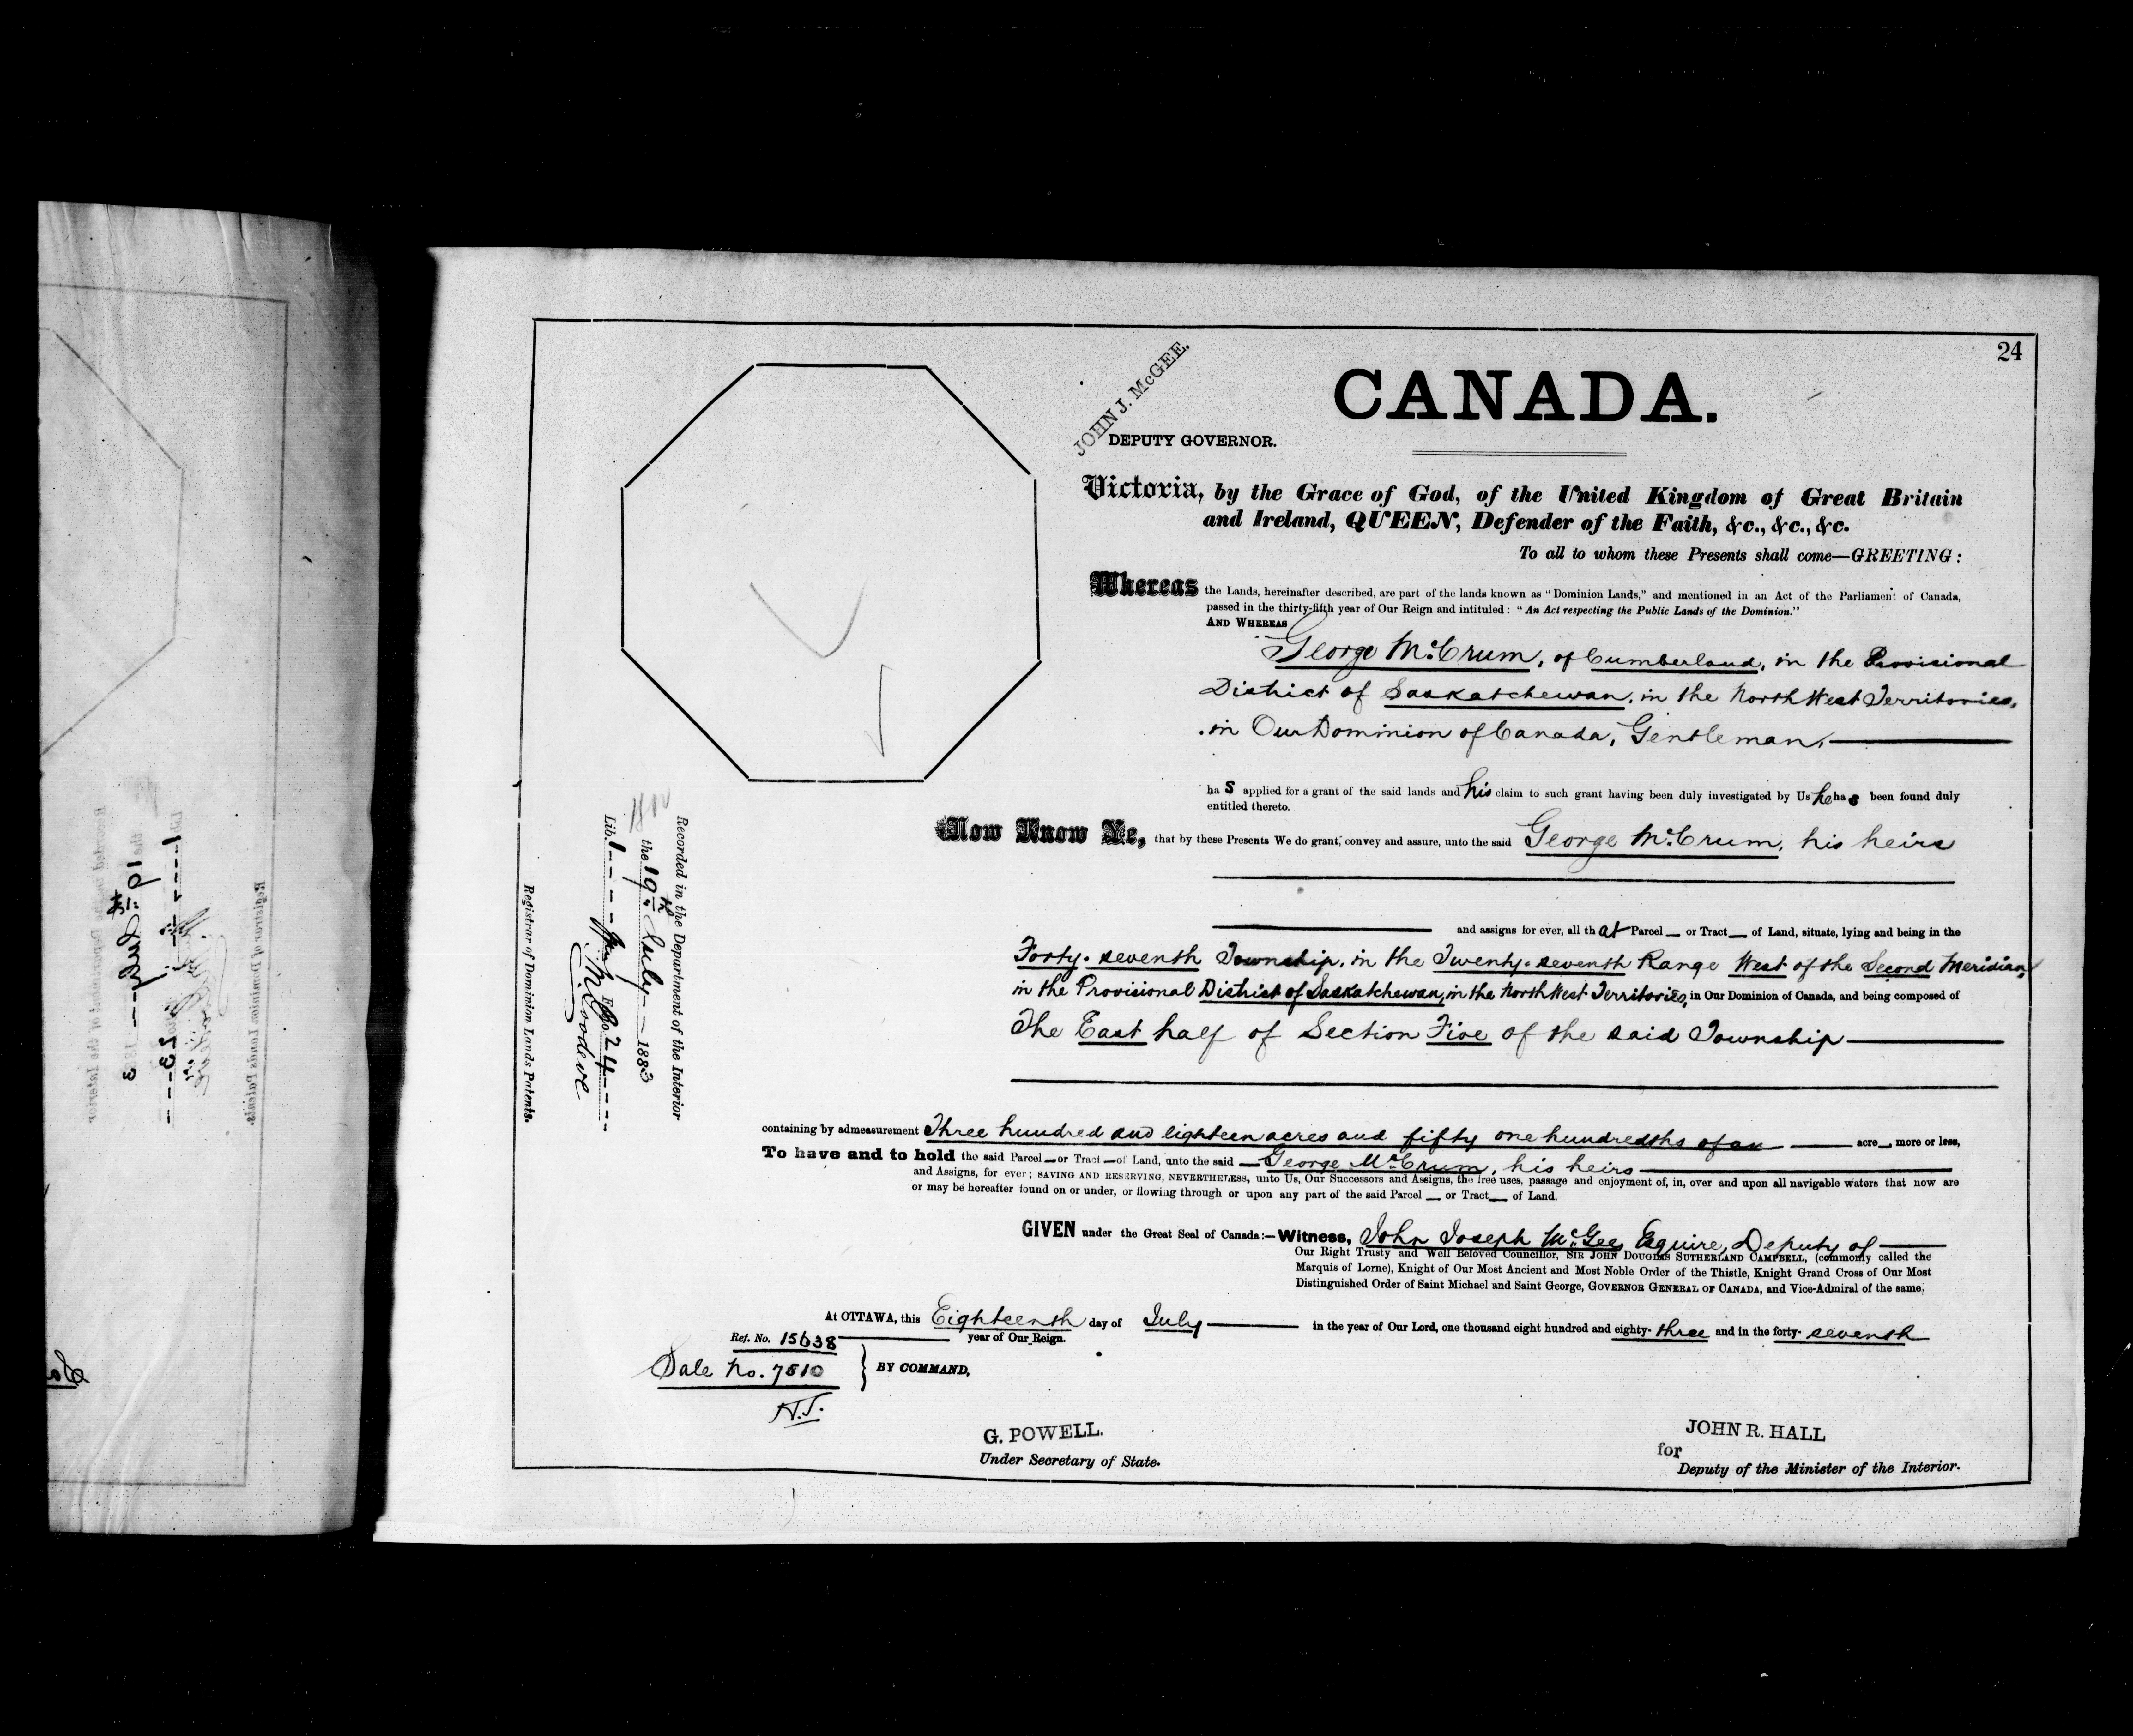 24
CANADA.
JOHN J. McGEE.
DEPUTY GOVERNOR.
Victoria, by the Grace of God, of the United Kingdom of Great Britain
and Ireland, QUEEN, Defender of the Faith, &c., &c., &c.
To all to whom these Presents shall come—GREETING:
Whereas the Lands, hereinafter described, are part of the lands known as "Dominion Lands," and mentioned in an Act of the Parliament of Canada,
passed in the thirty-fifth year of Our Reign and intituled: "An Act respecting the Public Lands of the Dominion."
AND WHEREAS
George McCrum, of Cumberland, in the Provisional
District of Saskatchewan, in the North West Territories,
in Our Dominion of Canada, Gentleman,
has applied for a grant of the said lands and his claim to such grant having been duly investigated by Us he has been found duly
entitled thereto.
Now Know Ye, that by these Presents We do grant, convey and assure, unto the said George McCrum, his heirs
and assigns for ever, all that Parcel or Tract of Land, situate, lying and being in the
Forty-seventh Township, in the Twenty-seventh Range West of the Second Meridian,
in the Provisional District of Saskatchewan, in the North West Territories, in Our Dominion of Canada, and being composed of
The East half of Section Five of the said Township
containing by admeasurement Three hundred and eighteen acres and fifty one hundredths of an acre, more or less,
To have and to hold the said Parcel or Tract of Land, unto the said George McCrum, his heirs
and Assigns, for ever; SAVING AND RESERVING, NEVERTHELESS, unto Us, Our Successors and Assigns, the free uses, passage and enjoyment of, in, over and upon all navigable waters that now are
or may be hereafter found on or under, or flowing through or upon any part of the said Parcel or Tract of Land.
GIVEN under the Great Seal of Canada:—Witness, John Joseph McGee, Esquire, Deputy of
Our Right Trusty and Well Beloved Councillor, SIR JOHN DOUGLAS SUTHERLAND CAMPBELL, (commonly called the
Marquis of Lorne), Knight of Our Most Ancient and Most Noble Order of the Thistle, Knight Grand Cross of Our Most
Distinguished Order of Saint Michael and Saint George, GOVERNOR GENERAL OF CANADA, and Vice-Admiral of the same.
At OTTAWA, this Eighteenth day of July in the year of Our Lord, one thousand eight hundred and eighty-three and in the forty-seventh
year of Our Reign.
Ref. No. 15638
Sale No. 7510
H.J.
BY COMMAND,
G. POWELL.
Under Secretary of State.
JOHN R. HALL
for
Deputy of the Minister of the Interior.
Recorded in the Department of the Interior
the 19th July 1883
Lib. 1 Folio 24
Wm M. Goodeve
Registrar of Dominion Lands Patents.